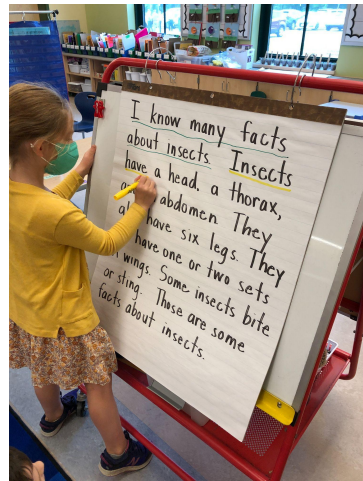 I know many facts
about insects. Insects
have a head. a thorax,
abdomen. They
have six legs. They
have one or two sets
wings. Some insects bite
or sting. Those are some
facts about insects.